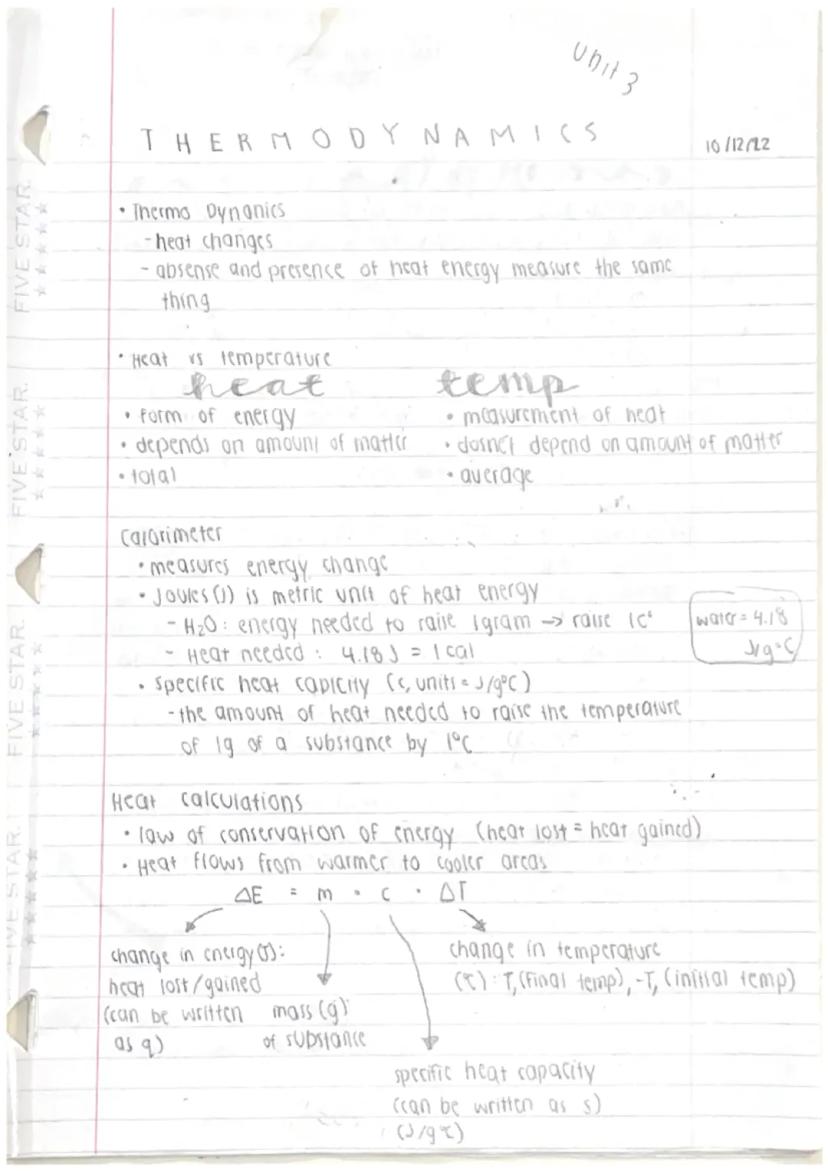 Unit 3
THERMODYNAMICS
10/12/22
• Thermo Dynanics
- heat changes
- absense and presence of heat energy measure the same
thing
• Heat vs temperature
heat temp
• form of energy • measurement of heat
• depends on amount of matter • dosnct depend on amount of matter
• total • average
Calorimeter
• measures energy change
• Joules (J) is metric unit of heat energy
- H₂O: energy needed to raise 1gram → raise 1C°
- Heat needed: 4.18J = 1 cal
water = 4.18
J/g°C
• specific heat capicity (c, units = J/g°C)
- the amount of heat needed to raise the temperature
of 1g of a substance by 1°C
Heat calculations
• law of conservation of energy (heat lost = heat gained)
• Heat flows from warmer to cooler areas
ΔE = m • c • ΔT
change in energy (J):
heat lost/gained
(can be written
as q)
mass (g)
of substance
change in temperature
(℃): T, (final temp), -T, (initial temp)
specific heat capacity
(can be written as s)
(J/g℃)
FIVE STAR.
FIVE STAR.
FIVE STAR.
FIVE STAR.